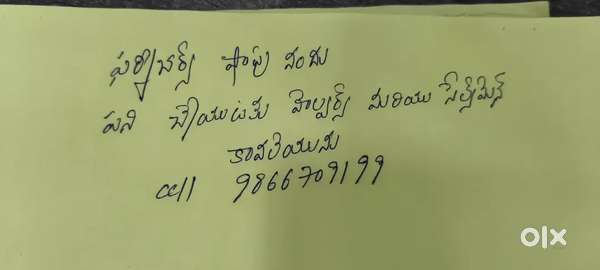 ఫర్నిచర్స్ షాపు నందు
పని చేయుటకు హెల్పర్స్ మరియు సేల్స్‌మెన్
కావలెయును
cell 9866709199
olx